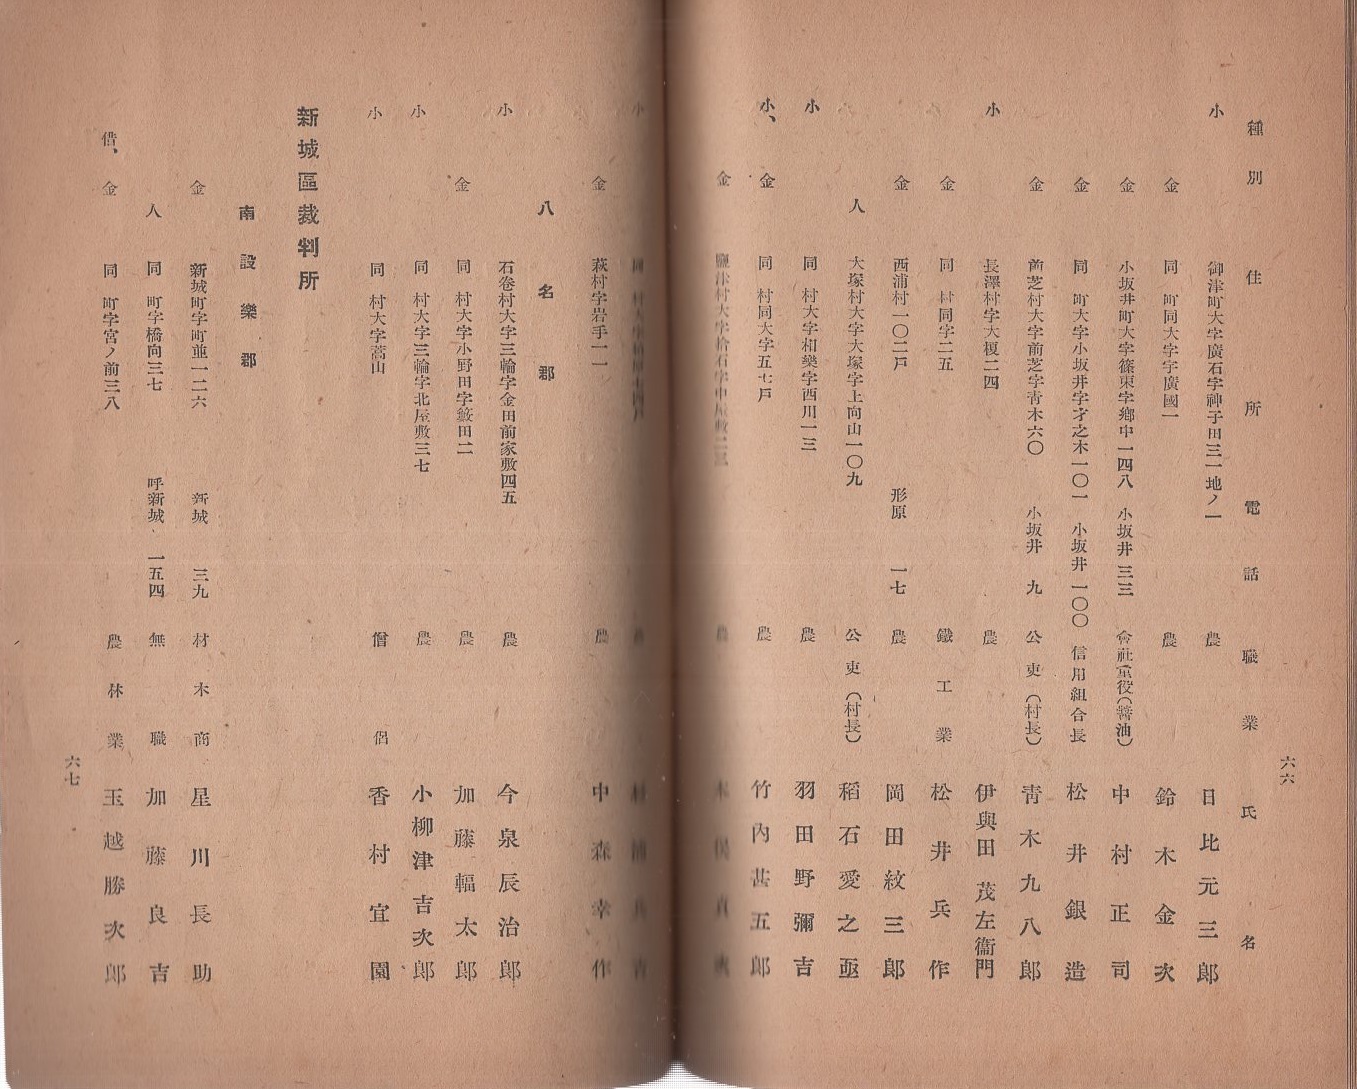 種別 住所 電話 職業 氏名
小 御津町大字廣石字神子田三一地ノ一 農 日比元三郎
金 同 町同大字字廣國一 農 鈴木金次
金 小坂井町大字篠束字鄕中一四八 小坂井 三三 會社重役(醬油) 中村正司
金 同 町大字小坂井字才之木一〇一 小坂井 一〇〇 信用組合長 松井銀造
金 前芝村大字前芝字靑木六〇 小坂井 九 公吏(村長) 靑木九八郞
小 長澤村字大榎二四 農 伊與田茂左衞門
金 同 村同字二五 鐵工業 松井兵作
金 西浦村一〇二戶 形原 一七 農 岡田紋三郞
人 大塚村大字大塚字上向山一〇九 公吏(村長) 稻石愛之亟
小 同 村大字相樂字西川一三 農 羽田野彌吉
小、金 同 村同大字五七戶 農 竹內甚五郞
金 鹽津村大字拾石字中屋敷二三 農 木俣
六六
小 同 村大字 農 村
金 萩村字岩手一一 農 中森幸作
八名郡
小 石卷村大字三輪字金田前家敷四五 農 今泉辰治郞
金 同 村大字小野田字籔田二 農 加藤輻太郞
小 同 村大字三輪字北屋敷三七 農 小柳津吉次郞
小 同 村大字嵩山 僧侶 香村宜園
新城區裁判所
南設樂郡
金 新城町字町並一二六 新城 三九 材木商 星川長助
人 同 町字橋向三七 呼新城 一五四 無職 加藤良吉
借、金 同 町字宮ノ前三八 農林業 玉越勝次郞
六七